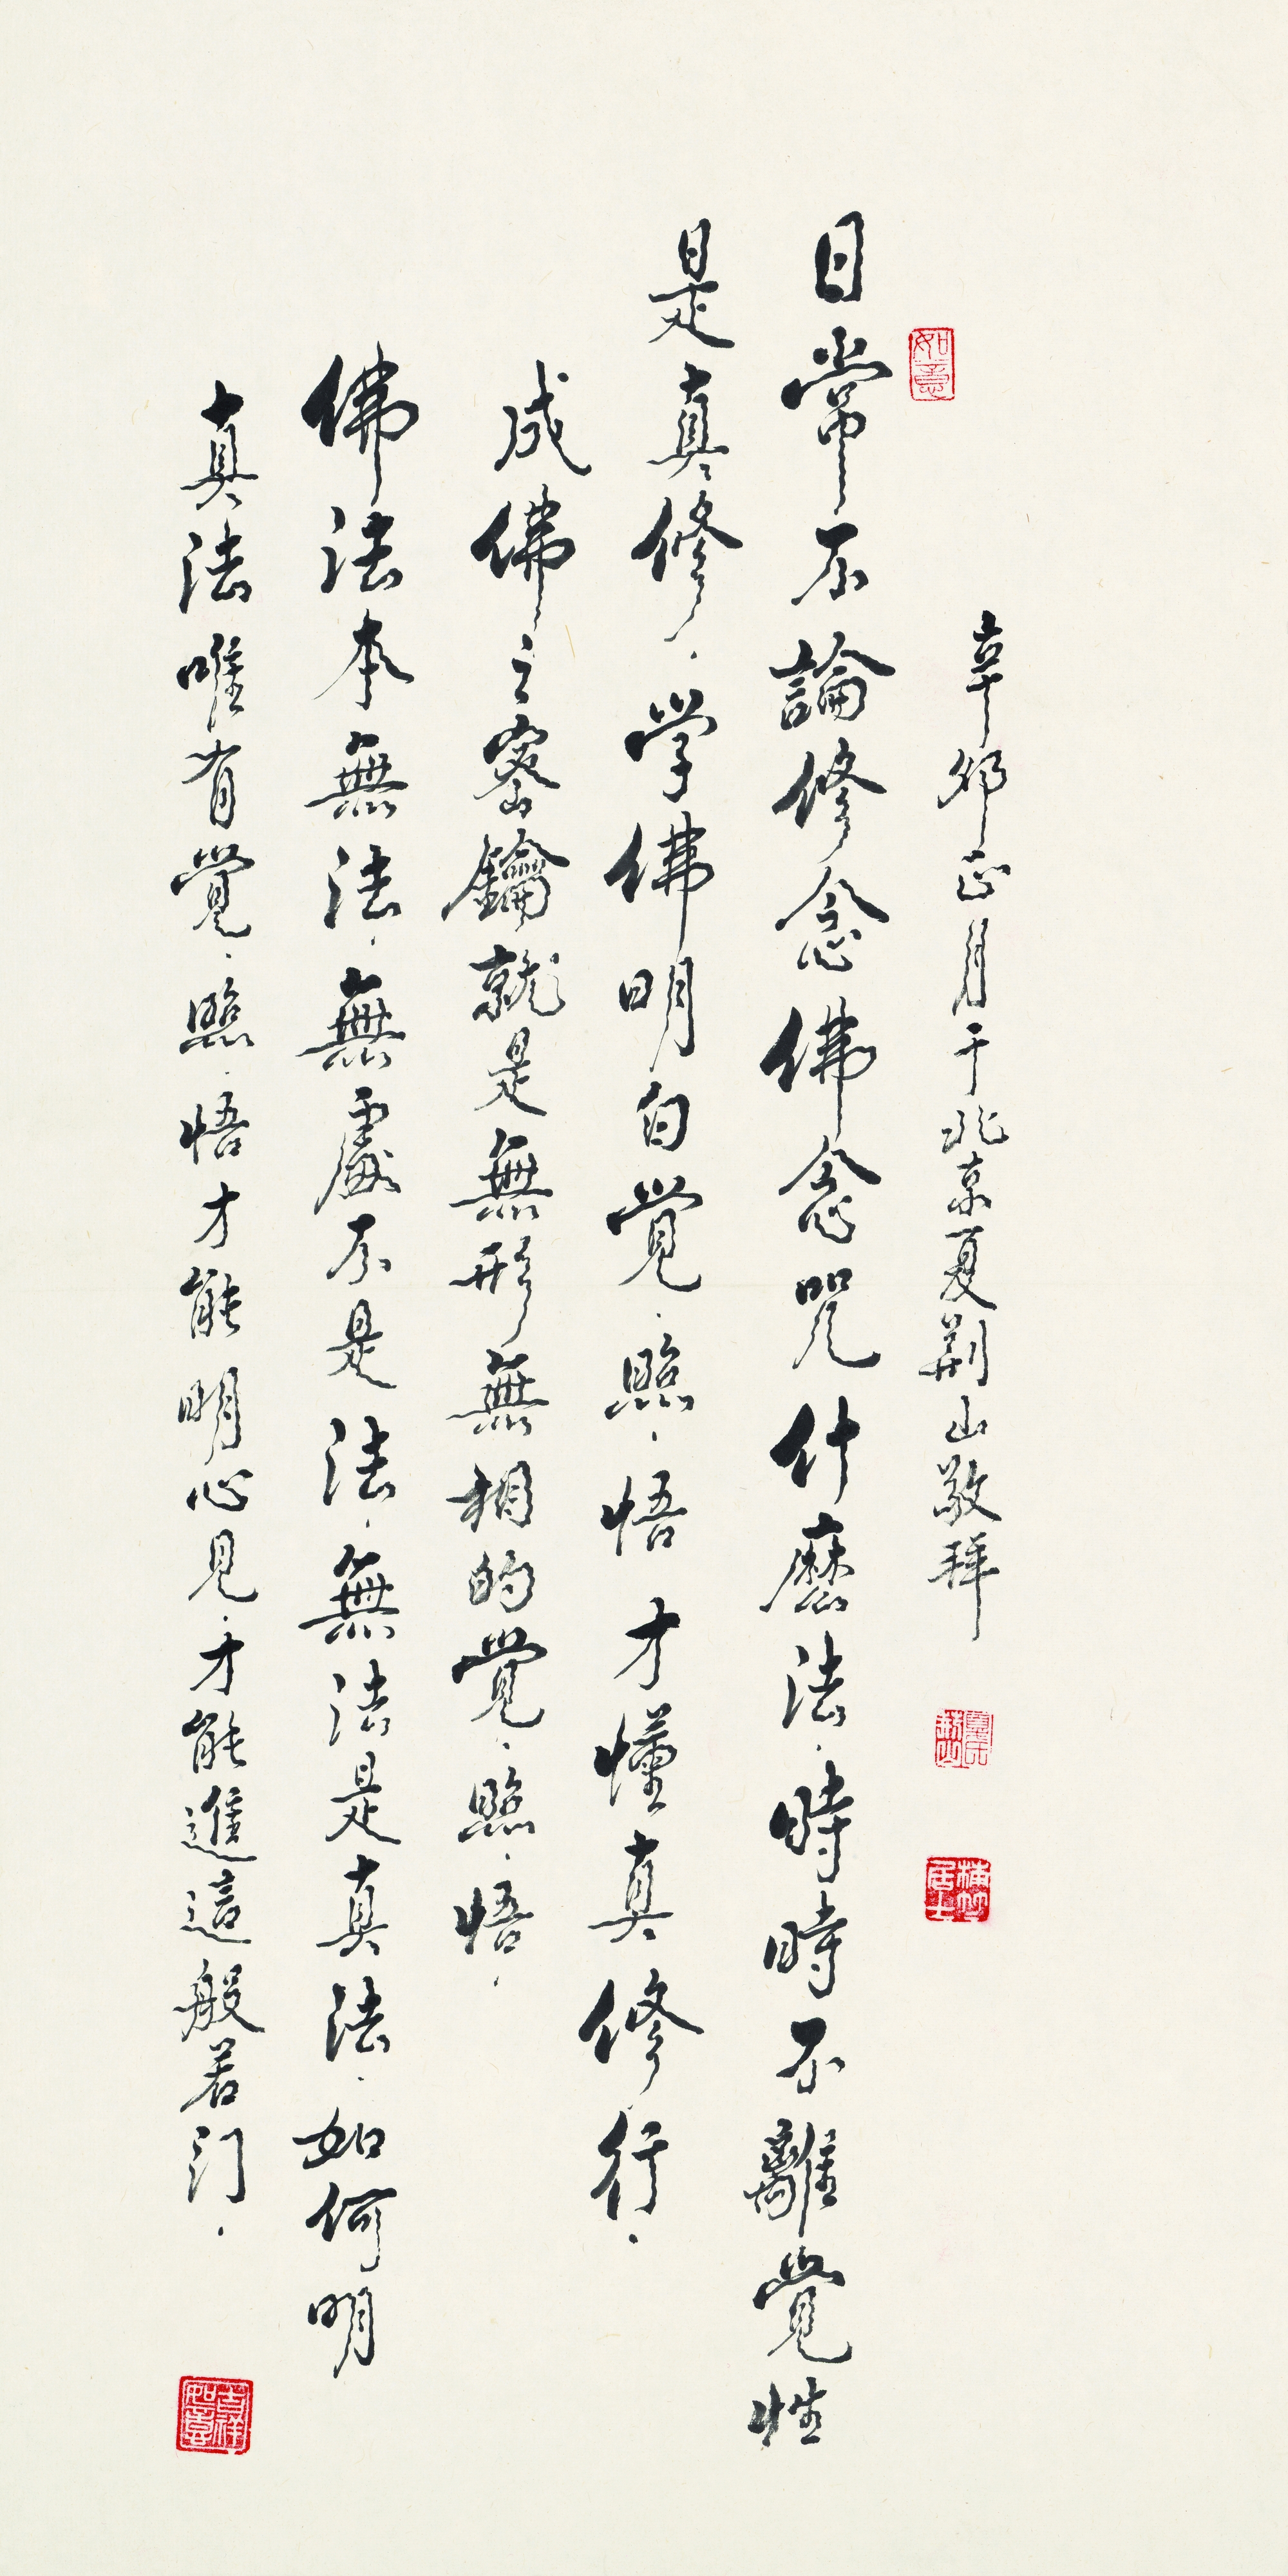 如意
辛卯正月于北京夏荆山敬拜
日常不論修念佛念咒什麽法.時時不離覺性
是真修.学佛明白覺.照.悟才懂真修行.
成佛之密鑰就是無形無相的覺.照.悟.
佛法本無法.無處不是法.無法是真法.如何明
真法唯有覺.照.悟才能明心見.才能進這般若门.
吉祥如意